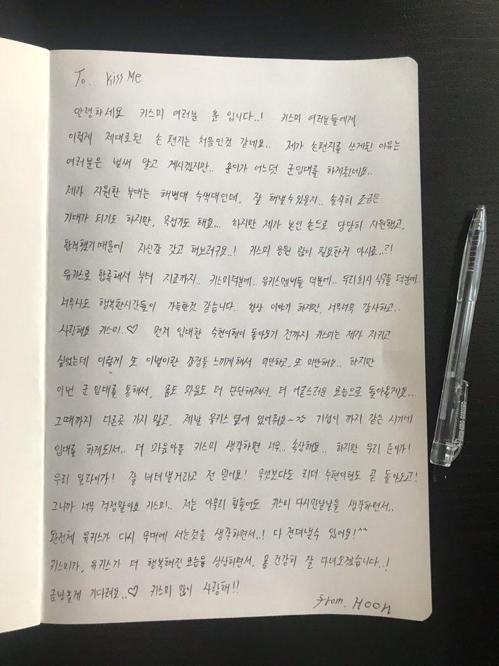 To. Kiss Me
안녕하세요 키스미 여러분 훈 입니다..! 키스미 여러분들에게
이렇게 제대로된 손 편지는 처음인것 같네요.. 제가 손편지를 쓰게된 이유는
여러분은 벌써 알고 계시겠지만.. 훈이가 어느덧 군입대를 하게됐네요..
제가 지원한 부대는 해병대 수색대인데, 잘 해낼수있을지.. 솔직히 조금은
기대가 되기도 하지만, 무섭기도 해요... 하지만 제가 본인 손으로 당당히 지원했고,
합격했기 때문에 자신감 갖고 해보려구요..! 키스미 응원 많이 필요한거 아시죠..?!
유키스로 합류해서 부터 지금까지.. 키스미덕분에.. 유키스멤버들 덕분에.. 우리회사 식구들 덕분에..
너무나도 행복한시간들이 가득한것 같습니다.. 항상 이야기 하지만, 너무너무 감사하고..
사랑해요 키스미.♡ 먼저 입대한 수현이형이 돌아오기 전까지 키스미는 제가 지키고
싶었는데 이렇게 또 이별이란 감정을 느끼게해서 미안하고, 또 미안해요.. 하지만
이번 군 입대를 통해서, 몸도 마음도 더 단단해져서, 더 어른스러운 모습으로 돌아올게요...
그때까지 다른곳 가지 말고, 제발 유키스 곁에 있어줘요~ㅠ 기섭이 까지 같은 시기에
입대를 하게되서.. 더 마음아플 키스미 생각하면 너무.. 속상해요.. 하지만 우리 준이가!
우리 일라이가! 잘 버텨낼거라고 전 믿어요! 무엇보다도 리더 수현이형도 곧 돌아오고!
그니까 너무 걱정말아요 키스미.. 저는 아무리 힘들어도 키스미 다시만날날을 생각하면서..
완전체 유키스가 다시 무대에 서는것을 생각하면서..! 다 견뎌낼수 있어요!^^
키스미가, 유키스가 더 행복해진 모습을 상상하면서, 몸 건강히 잘 다녀오겠습니다..!
금방올게 기다려요..♡ 키스미 많이 사랑해!!
from. Hoon